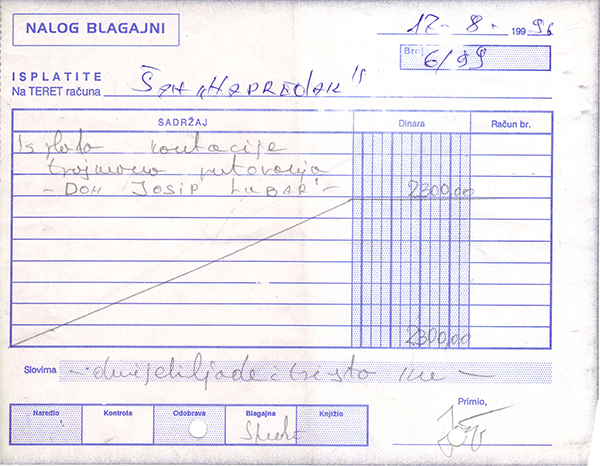 NALOG BLAGAJNI
17-8- 1996
Broj 6/99
ISPLATITE
Na TERET računa ŠPH „NAPREDAK"
SADRŽAJ Dinara Račun br.
Isplata
putovanja
- DOM JOSIP LUBAR - 2300,00
2300,00
Slovima - dvije hiljade i tristo -
Primio,
Naredio Kontrola Odobrava Blagajna Knjižio